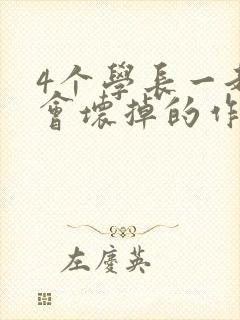 4个學長一起
會壞掉的作
左慶英